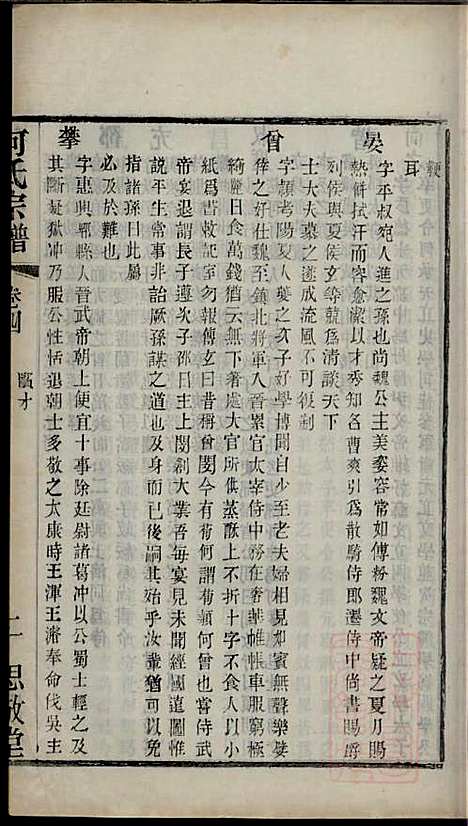 鞕
耳
晏
字平叔宛人進之孫也尚魏公主美姿容常如傅粉魏文帝疑之夏月賜
熱餅拭汗而容愈潔以才秀知名曹爽引爲散騎侍郎遷侍中尚書賜爵
列侯與夏侯玄等競爲清談天下
士大夫慕之遂成流風不可復制
曾
字穎考陽夏人夔之次子好學博聞自少至老夫婦相見如賓無聲樂嬖
倖之好仕魏至鎮北將軍入晉累官太宰侍中務在奢華帷帳車服窮極
綺麗日食萬錢猶云無下箸處大官所供蒸餅上不折十字不食人以小
紙爲書敕記室勿報傅玄曰昔稱曾閔今有荀何謂荀顗何曾也侍武
帝宴退謂長子遵次子邵曰主上開創大業吾每宴見未聞經國遠圖惟
說平生常事非詒厥孫謀之道也及身而已後嗣其殆乎汝輩猶可以免
指諸孫曰此屬
必及於難也
攀
字惠興郫縣人晉武帝朝上便宜十事除廷尉諸葛冲以公蜀士輕之及
其斷疑獄冲乃服公性恬退朝士多敬之太康時王渾王濬奉命伐吳主
何氏宗譜
卷四
甌才
二
思敬堂